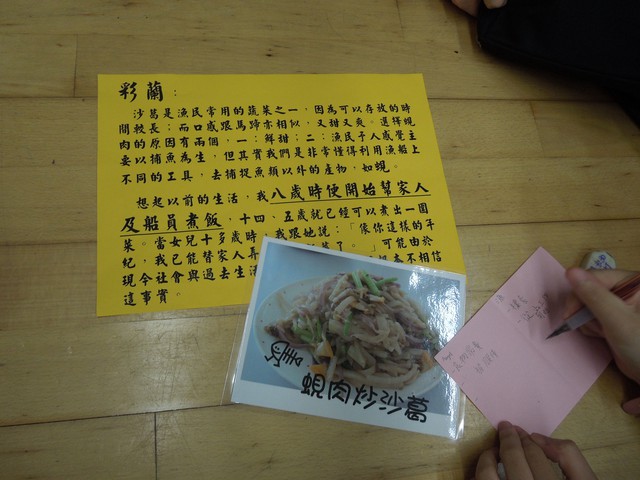 彩蘭：
沙葛是漁民常用的蔬菜之一，因為可以存放的時
間較長；而口感跟馬蹄亦相似，又甜又爽。選擇蜆
肉的原因有兩個，一：鮮甜；二：漁民予人感覺主
要以捕魚為生，但其實我們是非常懂得利用漁船上
不同的工具，去捕捉魚類以外的產物，如蜆。
想起以前的生活，我八歲時便開始幫家人
及船員煮飯，十四、五歲就已經可以煮出一圍
菜。當女兒十多歲時，我跟她說：「像你這樣的年
紀，我已能替家人弄 了。」可能由於
現今社會與過去生活 不相信
這事實。
蜆肉炒沙葛